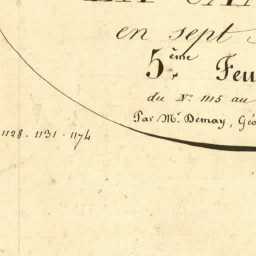 en sept
5ème Feu
du N° 1115 au
Par Mr. Demay, Géo
1128 . 1131 . 1174